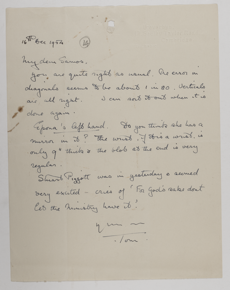 16th Dec 1956
My dear Seamus,
You are quite right as usual. The error in
diagonals seems to be about 1 in 80. Verticals
are all right. I can sort it out when it is
done again.
left hand Do you think she has a
mirror in it? The wrist, if it is a wrist, is
only 9" thick & the blob at the end is very
regular.
Stuart Piggott was in yesterday & seemed
very excited - cries of "For God's sake don't
let the Ministry have it!
Tom